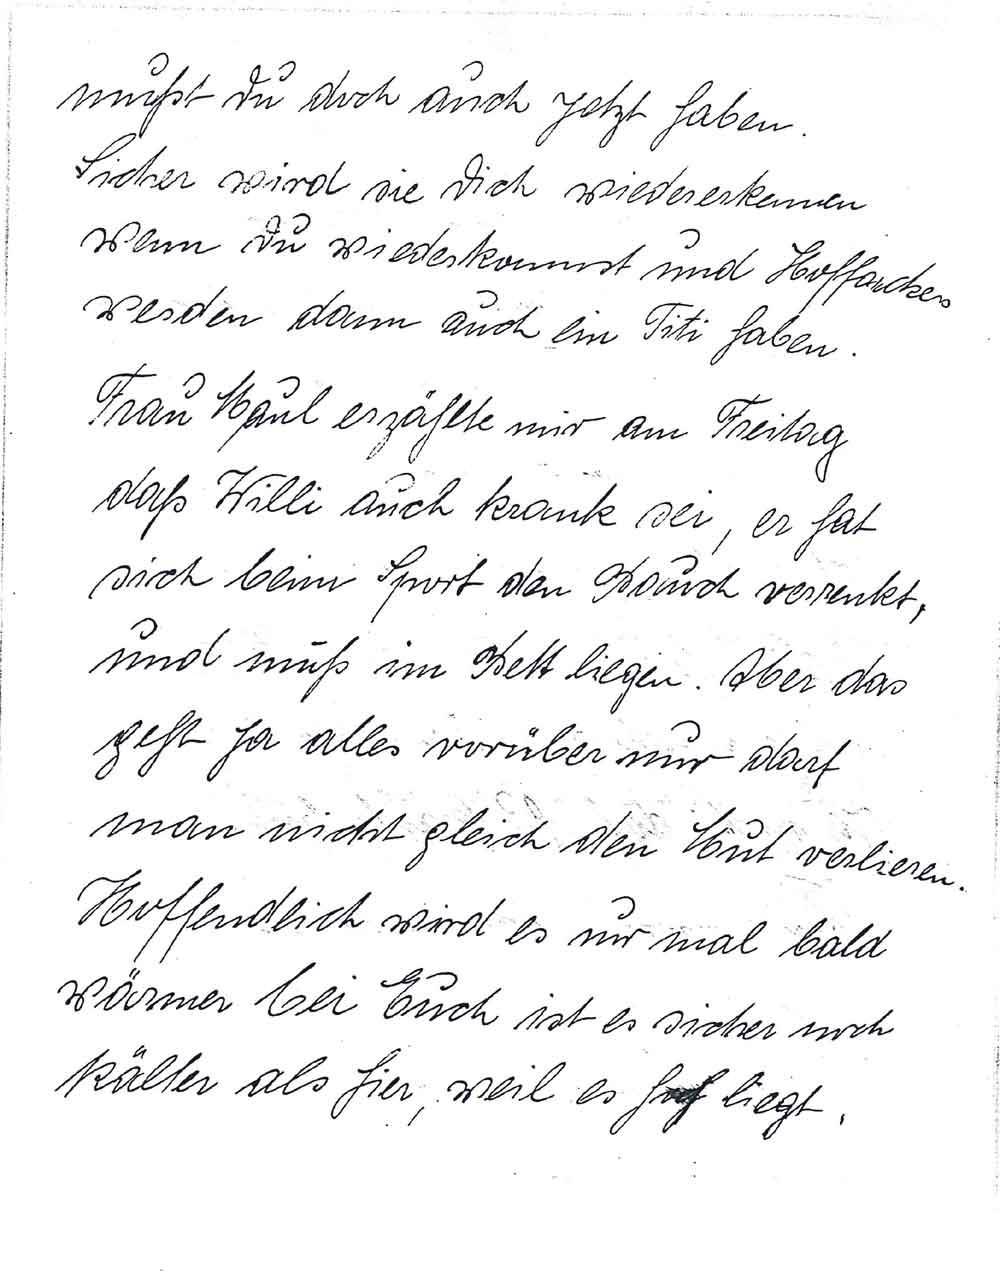 mußt Du doch auch jetzt haben.
Sicher wird sie Dich wiedererkennen
wenn Du wiederkommst und Hoffackers
werden dann auch ein Titi haben.
Frau Maul erzählte mir am Freitag
daß Willi auch krank sei, er hat
sich beim Sport den Bauch verrenkt,
und muß im Bett liegen. Aber das
geht ja alles vorüber nur darf
man nicht gleich den Mut verlieren.
Hoffendlich wird es nur mal bald
wärmer bei Euch ist es sicher noch
kälter als hier, weil es liegt.